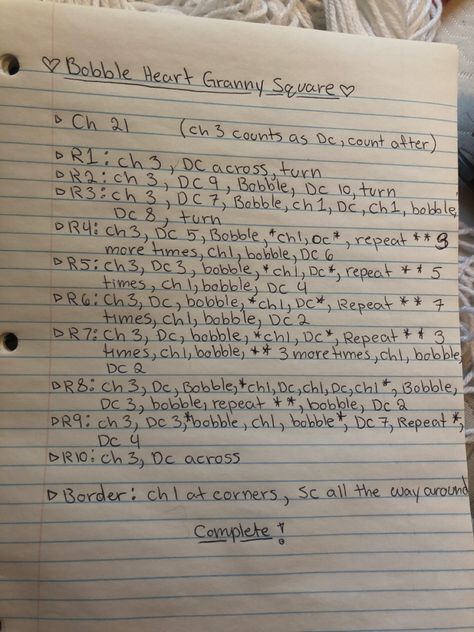 ♡ Bobble Heart Granny Square ♡
▹ Ch 21 (ch 3 counts as Dc, count after)
▹ R1: ch 3, DC across, turn
▹ R2: ch 3, DC 9, Bobble, DC 10, turn
▹ R3: ch 3, DC 7, Bobble, ch 1, DC, ch 1, bobble,
DC 8, turn
▹ R4: ch3, DC 5, Bobble, *ch1, DC*, repeat ** 3
more times, ch1, bobble, DC 6
▹ R5: ch 3, DC 3, bobble, *ch1, DC*, repeat ** 5
times, ch 1, bobble, DC 4
▹ R6: Ch 3, DC, bobble, *ch1, DC*, Repeat ** 7
times, ch1, bobble, DC 2
▹ R7: Ch 3, Dc, bobble, *ch1, DC*, Repeat ** 3
times, ch1, bobble, ** 3 more times, ch1, bobble
DC 2
▹ R8: ch 3, Dc, Bobble, *ch1, Dc, ch1, Dc, ch1*, Bobble,
DC 3, bobble, repeat **, bobble, DC 2
▹ R9: ch3, DC 3, *bobble, ch1, bobble*, DC 7, Repeat *
DC 4
▹ R10: ch 3, Dc across
▹ Border: ch 1 at corners, sc all the way around
Complete!